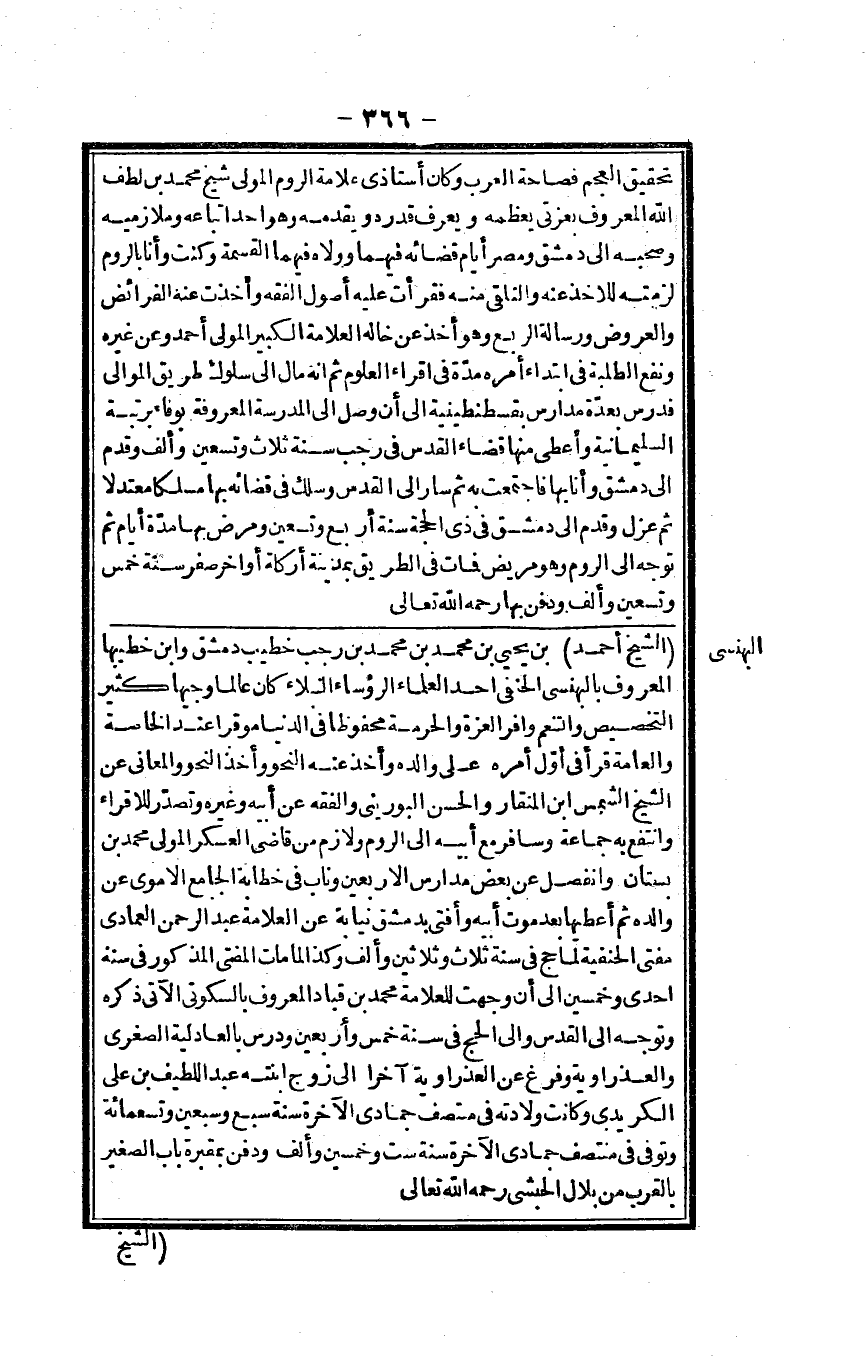 - ٣٦٦ -
تحقيق العجم فصاحة العرب وكان أستاذى علامة الروم المولى شيخ محمد بن لطف
الله المعروف بعزتى يعظمه ويعرف قدره ويقدمه وهو احد اتباعه وملازميه
وصحبه الى دمشق ومصر أيام قضائه فيهما وولاه فيهما القسمة وكنت وأنا بالروم
لزمته للاخذ عنه والتلقى منه فقرأت عليه أصول الفقه وأخذت عنه الفرائض
والعروض ورسالة الربع وهو أخذ عن خاله العلامة الكبير المولى أحمد وعن غيره
ونفع الطلبة فى ابتداء أمره مدّة فى اقراء العلوم ثم انه مال الى سلوك طريق الموالى
فدرس بعدّة مدارس بقسطنطينية الى أن وصل الى المدرسة المعروفة بوفاء برتبة
السليمانية وأعطى منها قضاء القدس فى رجب سنة ثلاث وتسعين وألف وقدم
الى دمشق وأنا بها فاجتمعت به ثم سار الى القدس وسلك فى قضائه بها مسلكا معتدلا
ثم عزل وقدم الى دمشق فى ذى الحجة سنة أربع وتسعين ومرض بها مدّة أيام ثم
توجه الى الروم وهو مريض فمات فى الطريق بمدينة أركلة أواخر صفر سنة خمس
وتسعين وألف ودفن بها رحمه الله تعالى
البهنسى
(الشيخ أحمد) بن يحيى بن محمد بن محمد بن رجب خطيب دمشق وابن خطيبها
المعروف بالبهنسى الحنفى احد العلماء الرؤساء النبلاء كان عالما وجيها كثير
التخصيص والتنعم وافر العزة والحرمة محفوظا فى الدنيا موقرا عند الخاصة
والعامة قرأ فى أوّل أمره على والده وأخذ عنه النحو وأخذ النحو والمعانى عن
الشيخ الشمس ابن المنقار والحسن البورينى والفقه عن أبيه وغيره وتصدّر للاقراء
وانتفع به جماعة وسافر مع أبيه الى الروم ولازم من قاضى العسكر المولى محمد بن
بستان وانفصل عن بعض مدارس الاربعين وناب فى خطابة الجامع الاموى عن
والده ثم أعطيها بعد موت أبيه وأفتى بدمشق نيابة عن العلامة عبد الرحمن العمادى
مفتى الحنفية لما حج فى سنة ثلاث وثلاثين وألف وكذا لما مات المفتى المذكور فى سنة
احدى وخمسين الى أن وجهت للعلامة محمد بن قباد المعروف بالسكوتى الآتى ذكره
وتوجه الى القدس والى الحج فى سنة خمس وأربعين ودرس بالعادلية الصغرى
والعذراوية وفرغ عن العذراوية آخرا الى زوج ابنته عبد اللطيف بن على
الكريدى وكانت ولادته فى منتصف جمادى الآخرة سنة سبع وسبعين وتسعمائة
وتوفى فى منتصف جمادى الآخرة سنة ست وخمسين وألف ودفن بمقبرة باب الصغير
بالقرب من بلال الحبشى رحمه الله تعالى
(الشيخ